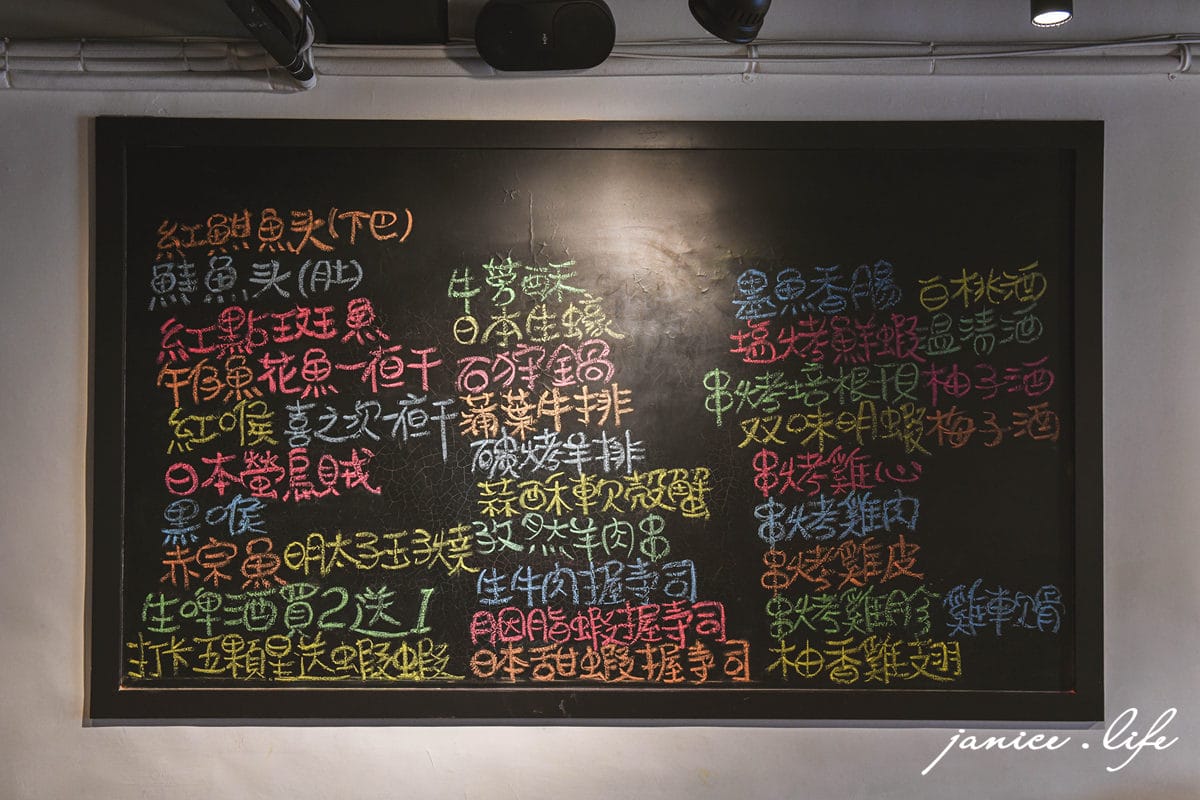 紅䱽魚头(下巴)
鮭魚头(肚)
紅點斑魚
午仔魚 花魚一夜干
紅喉 喜之次一夜干
日本螢烏賊
黑喉
赤宗魚 明太子玉子燒
生啤酒買2送1
打卡五顆星送蝦蝦
牛蒡酥
日本生蠔
石狩鍋
蒲葉牛排
碳烤羊排
蒜酥軟殼蟹
孜然羊肉串
生牛肉握寿司
胭脂蝦握寿司
日本甜蝦握寿司
墨魚香腸 白桃酒
塩烤鮮蝦 温清酒
串烤培根 柚子酒
双味明蝦 梅子酒
串烤雞心
串烤雞肉
串烤雞皮
串烤雞胗 雞軟骨
柚香雞翅
janice.life